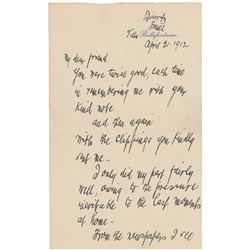 Biarritz
France
Villa Bellefontaine
April 21. 1912
My dear friend
You were twice good, each time
in remembering me with your
kind note
and then again
with the clippings you kindly
sent me -
I only did my part fairly
well, owing to the pressure
inevitable to the last moments
at home -
From the newspapers I see